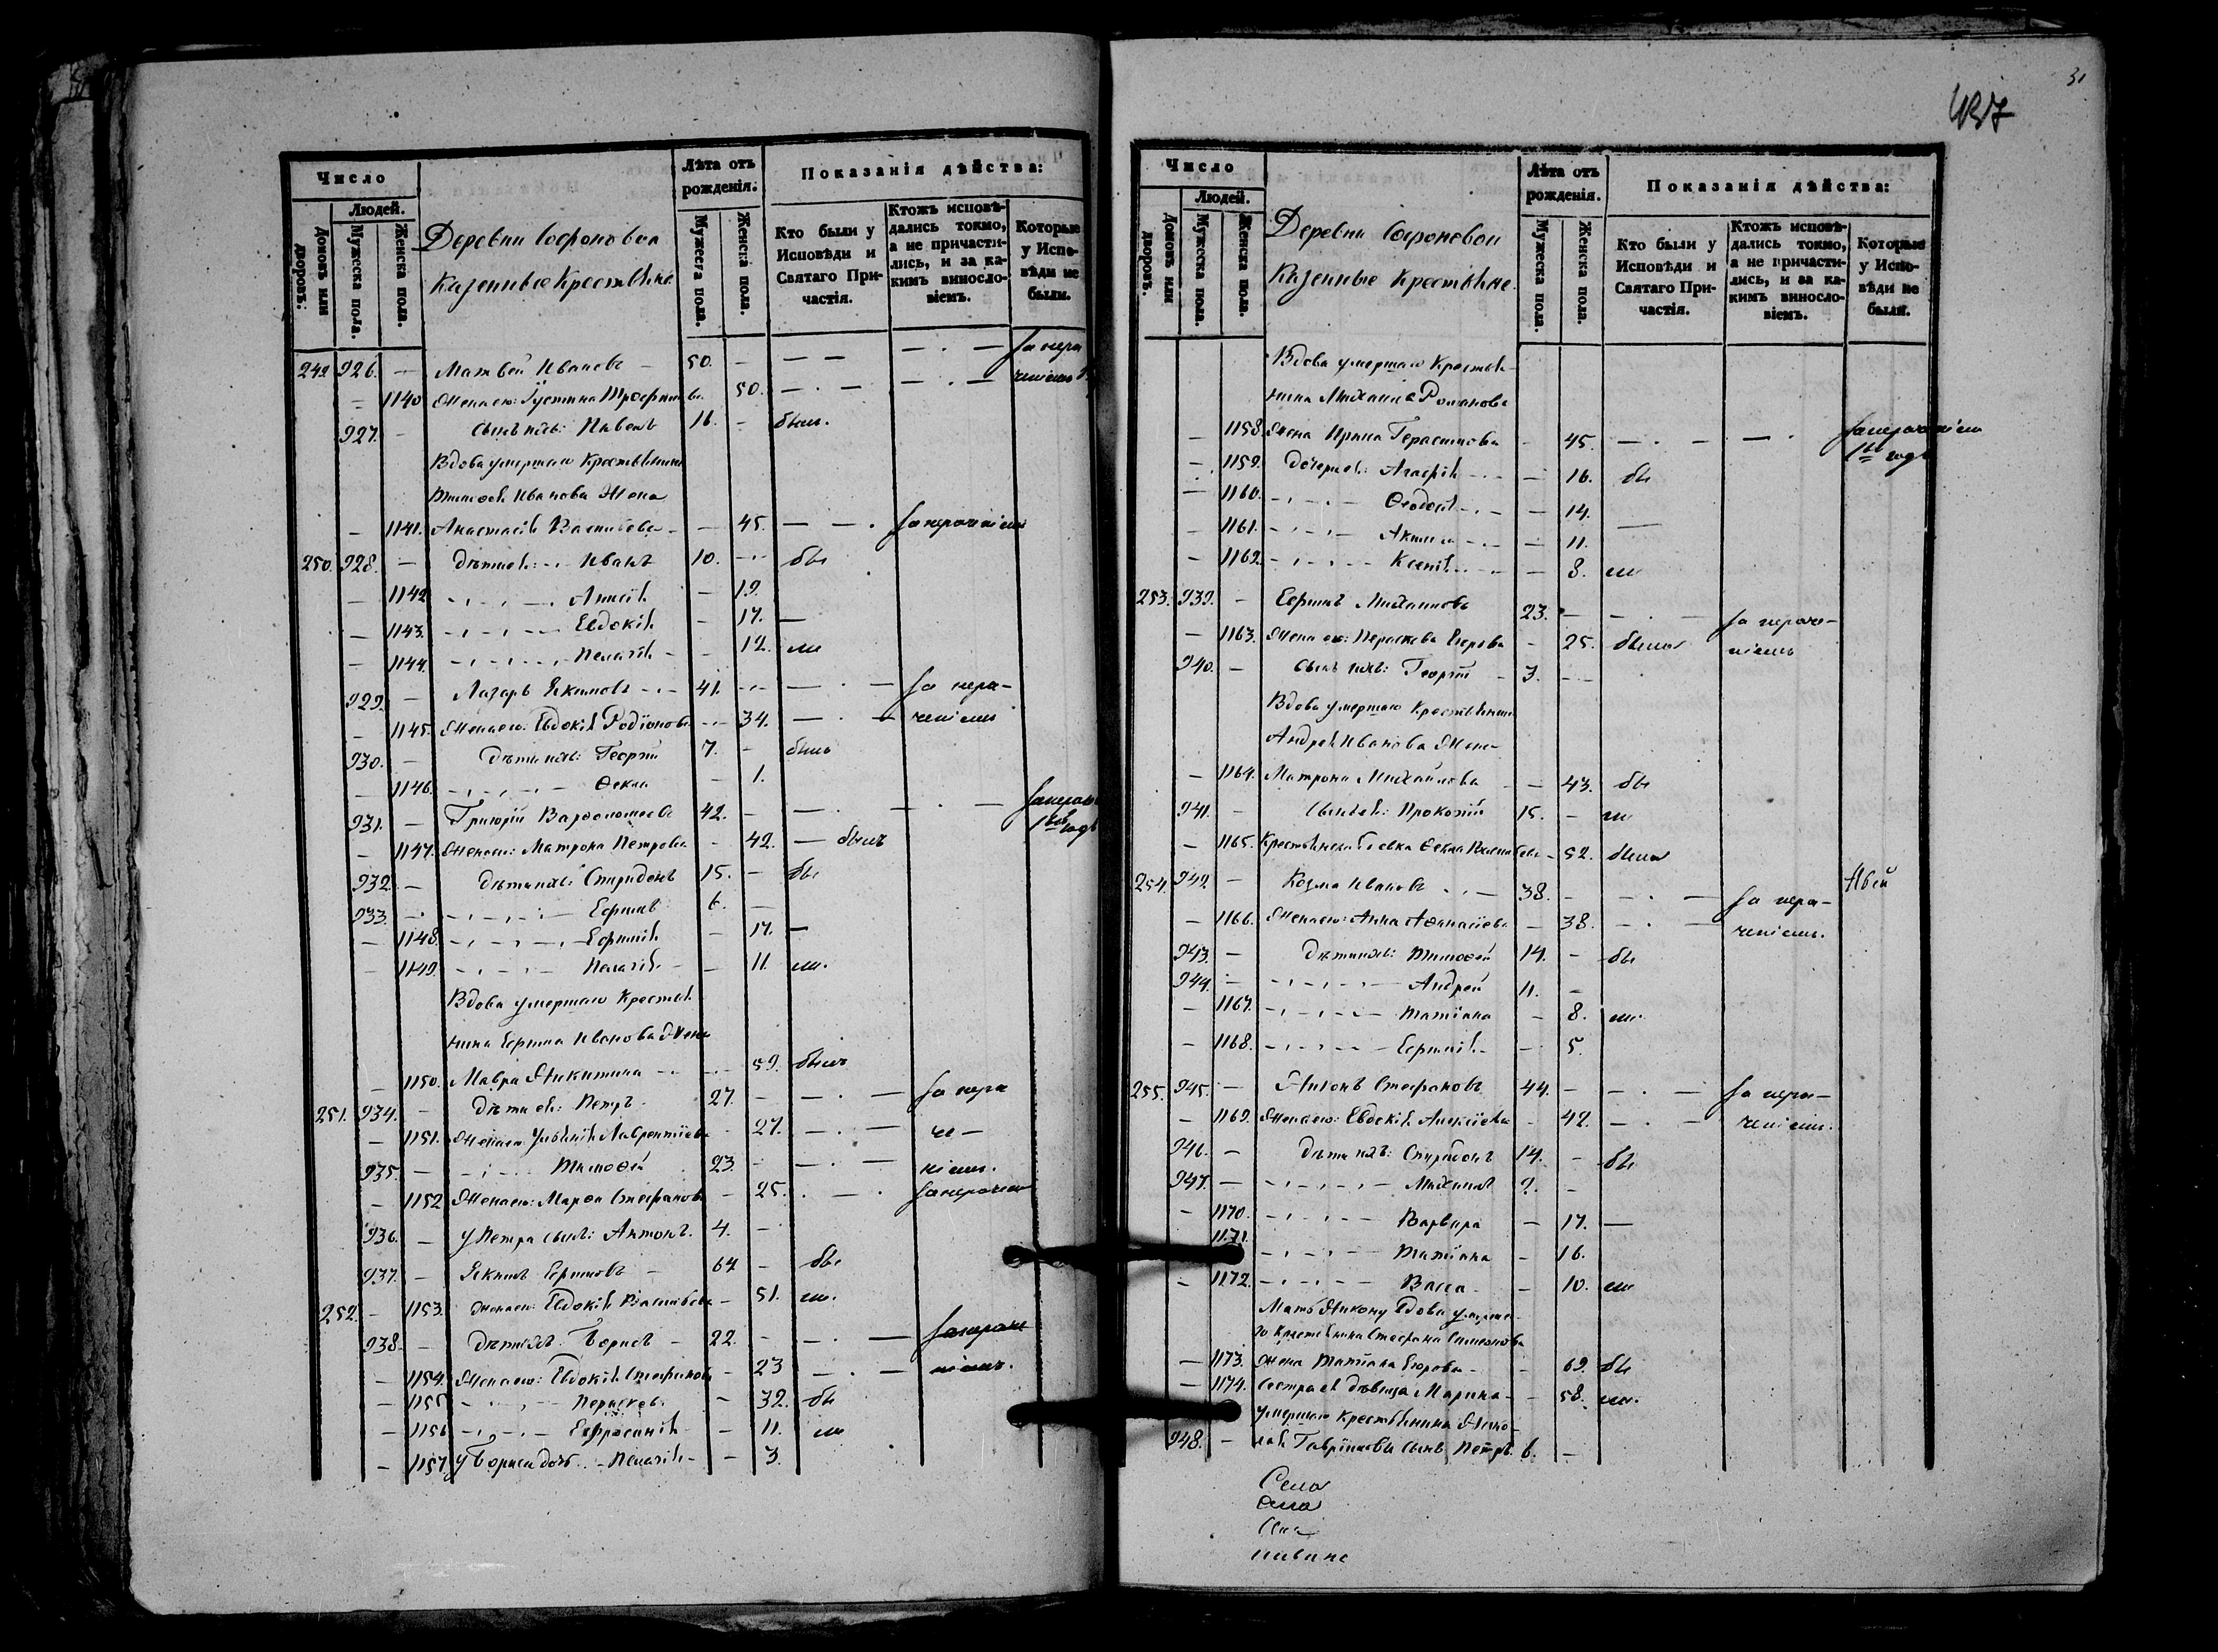 Число
Людей.
Домовъ или дворовъ.
Мужеска пола.
Женска пола.
Деревни Софоновой
Казенные Крестьяне.
Лѣта отъ рожденія.
Мужеска пола.
Женска пола.
Показанія дѣйства:
Кто были у Исповѣди и Святаго Причастія.
Ктожъ исповѣдались токмо, а не причастились, и за какимъ винословіемъ.
Которые у Исповѣди не были.
249 926. — Матвей Ивановъ — 50. — за нера
1140 Жена его: Густина Трофимова 50. — ченіемъ
927. — Сынъ ихъ: Павелъ 16. — былъ.
Вдова умершаго Крестьянина
Тимофея Иванова Жена
— 1141. Анастасія Васильева — — 45. — за нераченіем
250. 928. — Дѣти ея: Иванъ 10. — бы
— 1142 Анисія — 19.
— 1143. Евдокія — 17. —
— 1144. Пелагія — — 12. ли
929. — Лазарь Якимовъ — 41. — за нера-
— 1145. Жена его: Евдокія Родіонова — 34. — ченіемъ
930. — Дѣти ихъ: Георгій 7. — былъ
— 1146. Фекла — 1.
931. — Григорій Варфоломеевъ 42. — за нерач
— 1147. Жена его: Матрона Петрова — 42. — былъ 1й годъ
932. — Дѣти ихъ: Спиридонъ 15. — бы
933. — Ефимъ 6. —
— 1148. Ефимія — 17. —
— 1149. Пелагія — — 11. ли.
Вдова умершаго Крестья
нина Ефима Иванова Жена
— 1150. Мавра Никитина — 59. была
251. 934. — Дѣти ея: Петръ 27. — за нера
— 1151. Жена его Ульянія Лаврентіева — 27. — че—
935. — Тимофей 23. — ніемъ.
— 1152 Жена его: Марфа Стефанова — 25. за нерачен
936. — У Петра сынъ: Антонъ. 4. —
937. — Якимъ Ефимовъ — 64 — бы
252. — 1153. Жена его: Евдокія Васильева — 51. ли.
938. — Дѣти ихъ: Борисъ — 22. — за нераче
— 1154. Жена его: Евдокія Стефанова — 23 — ніемъ.
— 1155 Параскева — 32. бы
— 1156 Евфросинія — 11. ли
— 1157. У Бориса дочь — Пелагія — — 3.
31
Число
Людей.
Домовъ или дворовъ.
Мужеска пола.
Женска пола.
Деревни Софоновой
Казенные Крестьяне.
Лѣта отъ рожденія.
Мужеска пола.
Женска пола.
Показанія дѣйства:
Кто были у Исповѣди и Святаго Причастія.
Ктожъ исповѣдались токмо, а не причастились, и за какимъ винословіемъ.
Которые у Исповѣди не были.
Вдова умершаго Крестья-
нина Михаила Романова
— 1158. Жена Ирина Герасимова — 45. — за нераченіем
— 1159. Дочери ея: Агафія — — 16. бы 1й годъ
— 1160. Феодосія — — 14.
— 1161. Акилина — — 11. —
— 1162. Ксенія — — 8. ли
253. 939. — Ефимъ Михаиловъ 23. — за нераче-
— 1163. Жена его: Параскева Егорова — 25. была ніемъ
940. — Сынъ ихъ: Георгій — 3. —
Вдова умершаго Крестьянина
Андрея Иванова Жена
— 1164. Матрона Михайлова — 43. бы
941. — Сынъ ея: Прокопій 15. — ли
— 1165. Крестьянская девка Фекла Васильева — 52. была
254. 942 — Козма Ивановъ — 38. — за нера-
— 1166. Жена его: Анна Афанасіева — 38. — ченіемъ.
943. — Дѣти ихъ: Тимофей 14. — бы
944. — Андрей 11. —
— 1167. Татіана — 8. ли.
— 1168. Ефимія — 5.
255. 945. — Никонъ Стефановъ 44. — за нера—
— 1169. Жена его: Евдокія Алексіева — 42. — ченіемъ.
946. — Дѣти ихъ: Спиридонъ 14. — бы
947. — Михаилъ 9. —
— 1170. Варвара — 17. —
1171. Татіана — 16.
— 1172. Васса — 10. ли
Мать Никону Вдова умерша-
го Крестьянина Стефана Симеонова
— 1173. Жена Татіана Егорова — — 69. бы
— 1174. Сестра ея дѣвица Марина — — 58. ли.
Умершаго Крестьянина Нико-
948. — лая Гавріилова Сынъ Петръ. 6. —
Села